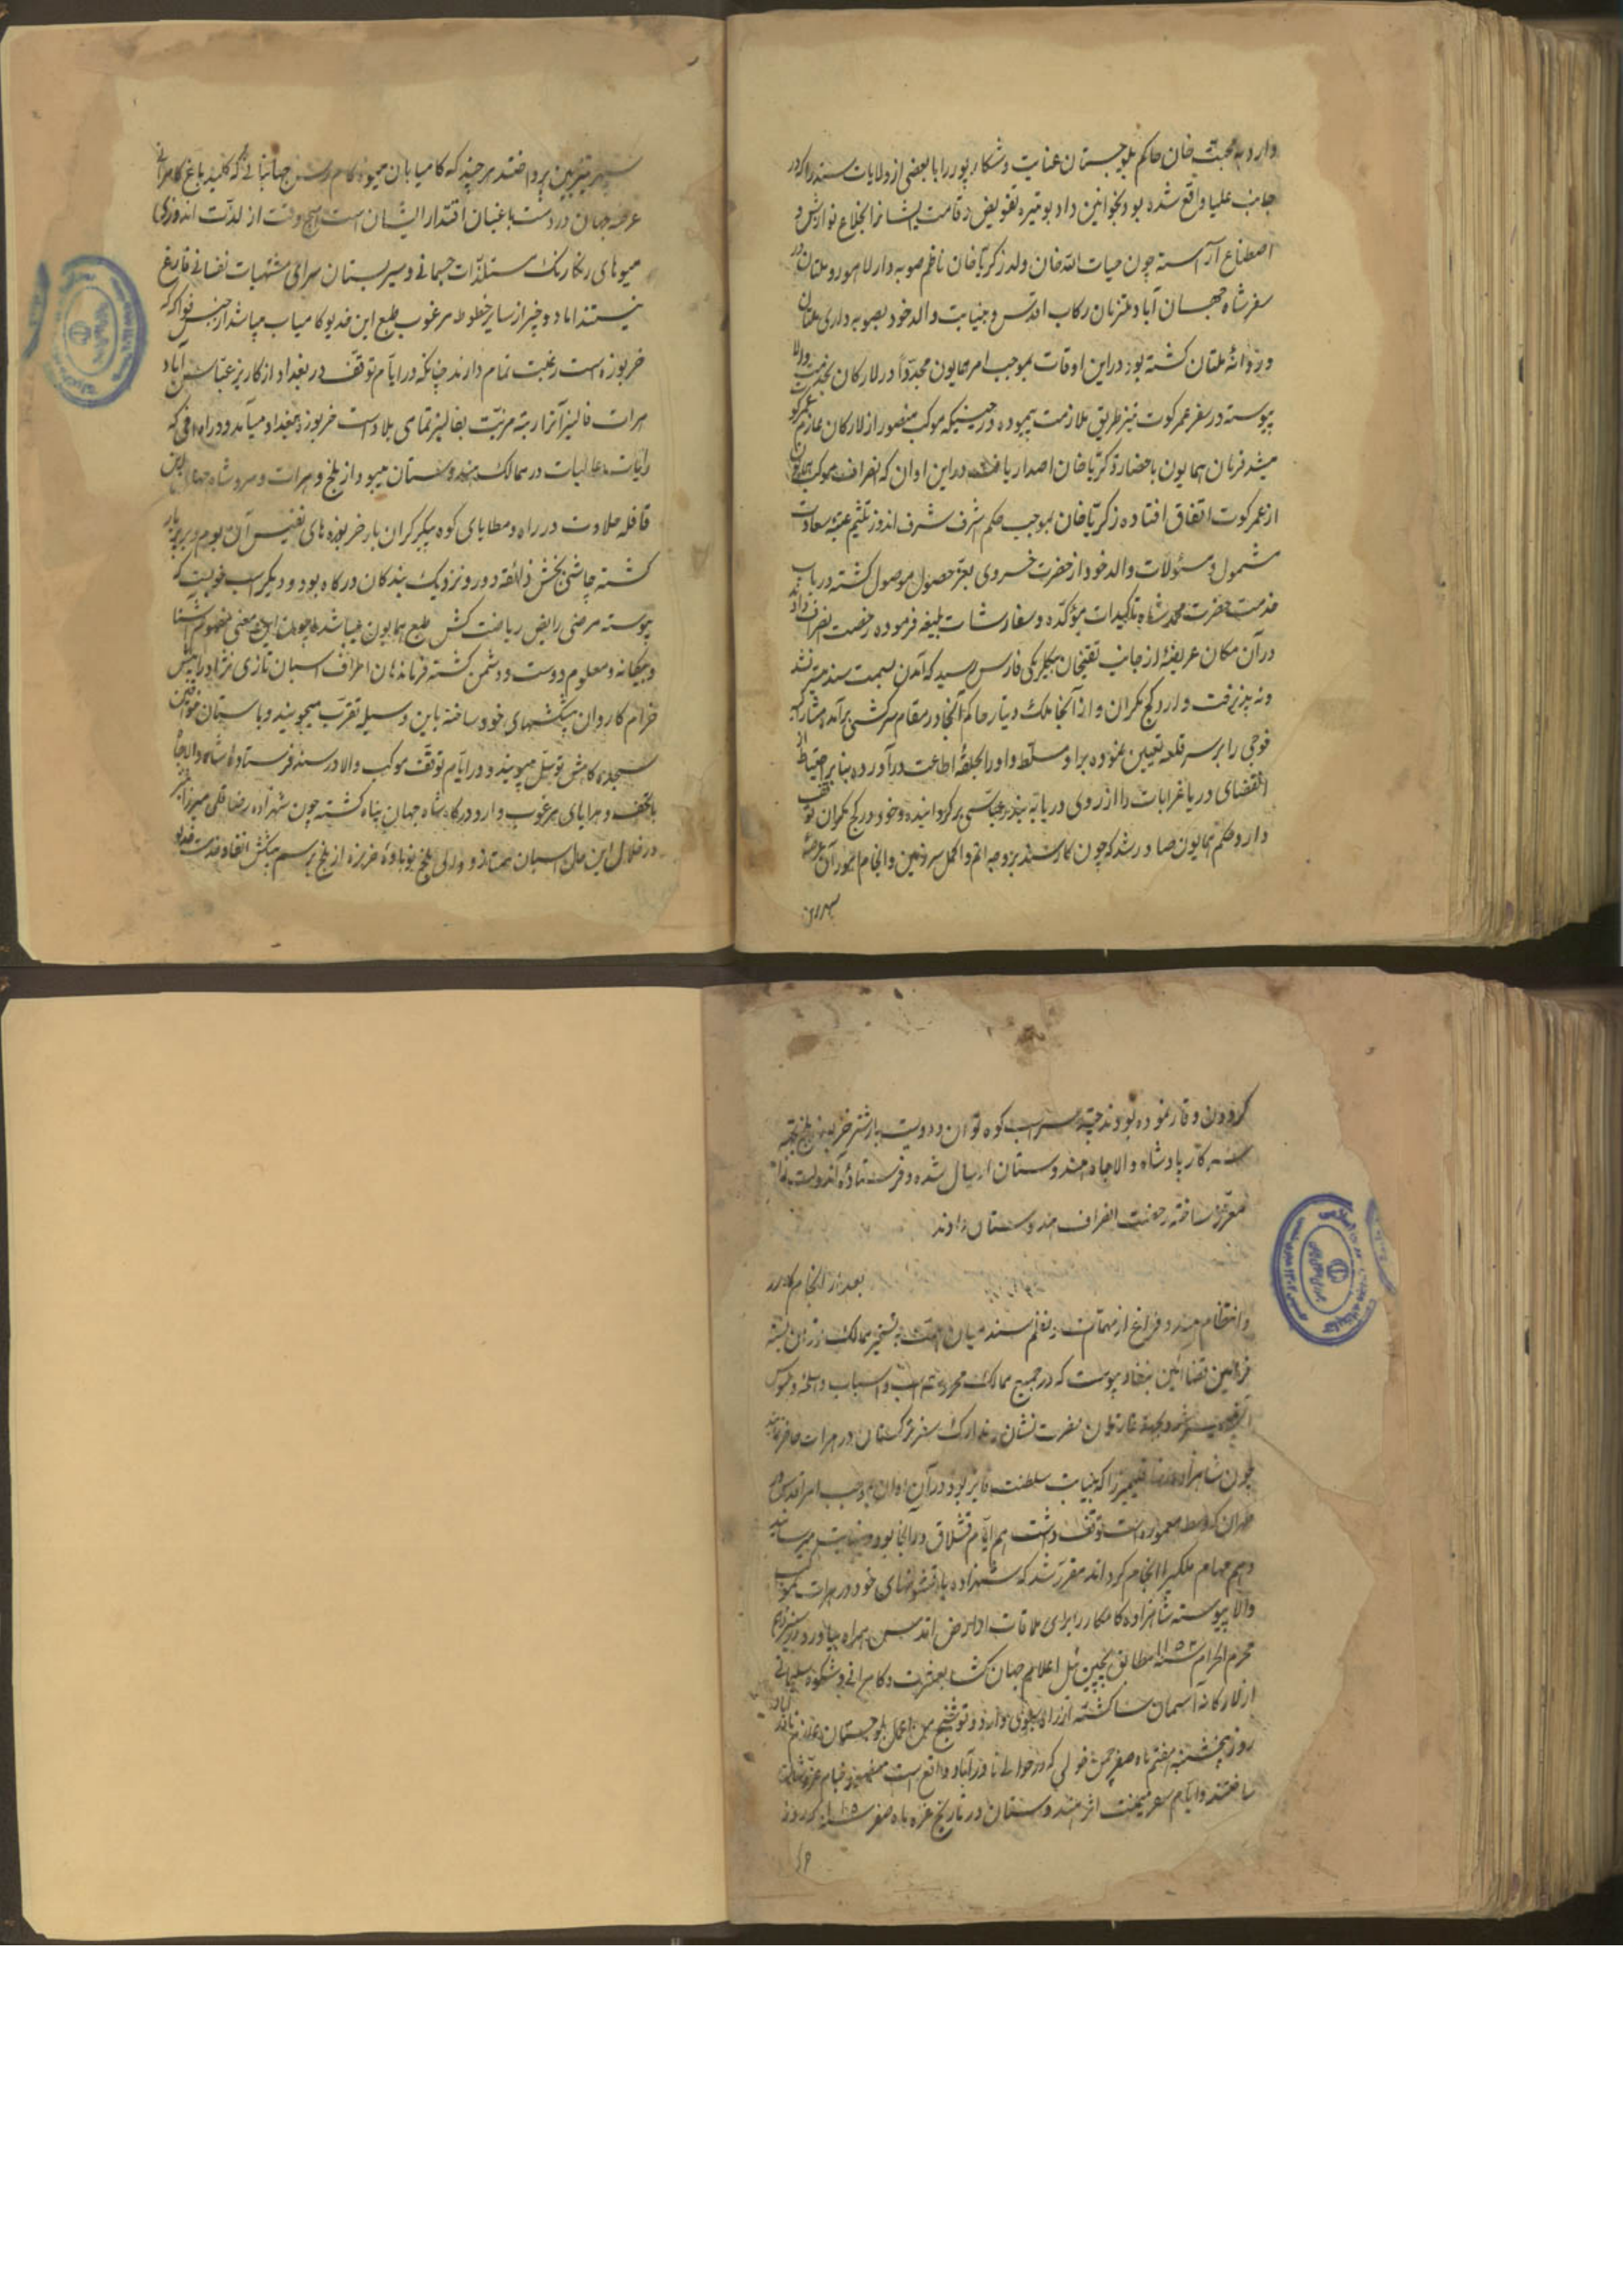 دارد به محبت خان حاکم بلوچستان عنایت و شکارپور را با بعضی از ولایات سند را که در
جانب علیا واقع شده بود بخوانین داد بوتیره تفویض و قامت ایشانرا بخلاع نوازش و
اصطناع آراسته چون حیات الله خان ولد زکریا خان ناظم صوبه دار لاهور و ملتان در
سفر شاه جهان آباد ملتزمان رکاب اقدس و بنیابت والد خود بصوبه داری ملتان
و روانهٔ ملتان گشته بود در این اوقات بموجب امر همایون مجدداً در لارکان بخدمت والا
پیوسته در سفر عمرکوت نیز طریق ملازمت پیموده در حینیکه موکب منصور از لارکان عازم عمرکوت
میشد فرمان همایون باحضار زکریا خان اصدار یافت در این اوان که انصراف موکب همایون
از عمرکوت اتفاق افتاده زکریا خان بموجب حکم اشرف شرف اندوز تلثیم عتبهٔ سعادت
مشمول و مسئولات والد خود از حضرت خسروی بعز حصول موصول گشته در باب
خدمت حضرت محمد شاه تاکیدات مؤکده و سفارشات بلیغه فرموده رخصت انصراف داد
در آن مکان عریضهٔ از جانب تقیخان بیگلربیگی فارس رسید که آمدن بسمت سند میسر نشد
ونه پذیرفت وارد کیج مکران و از آنجا ملک دینار حاکم آنجا در مقام سرکشی برآمد
فوجی را بر سر قلعه تعیین نموده برا و مسلط و او را بحلقهٔ اطاعت درآورده بنابر احتیاط از
انقضای دریا غرابات را از روی دریا به بندر عباسی برگردانیده و خود در کیج مکران توقف
دارد حکم همایون صادر شد که چون کار سند بر وجه اتم و اکمل سر و زمین و انجام
سپهر و بن
سپهر تزیین پرداختند هر چند که کامیابان میوه کام رسن جهانبانی که کلید باغ کامرانی
عرصه جهان در دست باغبان اقتدار ایشان است هیچوقت از لذت اندوزی
میوهای رنگارنگ مستلذات جسمانی و سیر بستان سرای مشتهیات نفسانی فارغ
نیستند اما دو چیز از سایر حظوظ مرغوب طبع این خدیو کامیاب میباشد از جنس فواکه که
خربوزه است رغبت تمام دارند چنانکه در ایام توقف در بغداد از کاریز عباس آباد
هرات فالیز آنرا رتبه مزیت بفالیز تمامی بلاد است خربوزه ببغداد میآمد و در اوانی که
رایات عالیات در ممالک هندوستان میبود از بلخ و هرات و مرو شاه جهان
قافله حلاوت در راه و مطایای کوه پیکر گران بار خربوزه های نفیس آن بوم و بر
گشته چاشنی بخش ذائقه دور و نزدیک بندگان درگاه بود و دیگر اسب خوبیست که
پیوسته مرضی رایض ریاضت کش طبع همایون میباشد چون این معنی مفهوم آشنا
و بیگانه و معلوم دوست و دشمن گشته فرماندهان اطراف اسبان تازی نژاد را پیش
خرام کاروان پیشکشهای خود ساخته باین وسیله تقرب میجویند و باستان
سجده گاهش توسل میجویند و در ایام توقف موکب والا در سند فرستادهٔ شاه والاجاه
با تحف و هدایای مرغوب وارد درگاه شاه جهان پناه گشته چون شهزاده رضا قلی میرزا نیز
در خلال این حال اسبان ممتاز و والی بلخ نوباوهٔ خربزه از بلخ برسم پیشکش انفاذ خدمت خدیو
گردون وقار نموده بودند چند سر اسب کوه توان و دویست بار شتر خربوزه بلخ بجهة
سرکار پادشاه والاجاه هندوستان ارسال شده و فرستادهٔ آندولت را
معزز ساخته رخصت انصراف هندوستان دادند
بعد از انجام کار
و انتظام هند و فراغ از مهمات و نظم سند میان همت به تسخیر ممالک توران بسته
فرامین قضا آئین بنفاذ پیوست که در جمیع ممالک محروسه اسب و اسباب و اسلحه و ملبوس
بجهة غازیان نصرت نشان و تدارک سفر ترکستان در هرات حاضر نمایند
چون شاهزاده رضا قلیمیرزا که بنیابت سلطنت فایز بود در آن اوان بموجب امر اقدس در
طهران که وسط معموره است توقف داشت هم ایام قشلاق در آنجا بود
وهم مهام ملکیرا انجام کرداند مقرر شد که شهزاده با قشونهای خود در هرات بموکب
والا پیوسته شاهزاده کامکار را برای ملاقات از ارض اقدس همراه بیاورد
محرم الحرام سنه ۱۱۵۳ مطابق پیچین ئیل اعلام جهان گشا بعشرت و کامرانی و شکوه سلیمانی
از لارکانه آسمان سا گشته از راه سیوی و دادر و توشنج من اعمال بلوچستان عازم نادرآباد
روز پنجشنبه هفتم ماه صفر چمن خولی که در حوالی نادرآباد واقع است مضرب خیام عز و شان
ساختند و ایام سفر میمنت اثر هندوستان در تاریخ غره ماه صفر سنه ۱۱۵۱ که روز